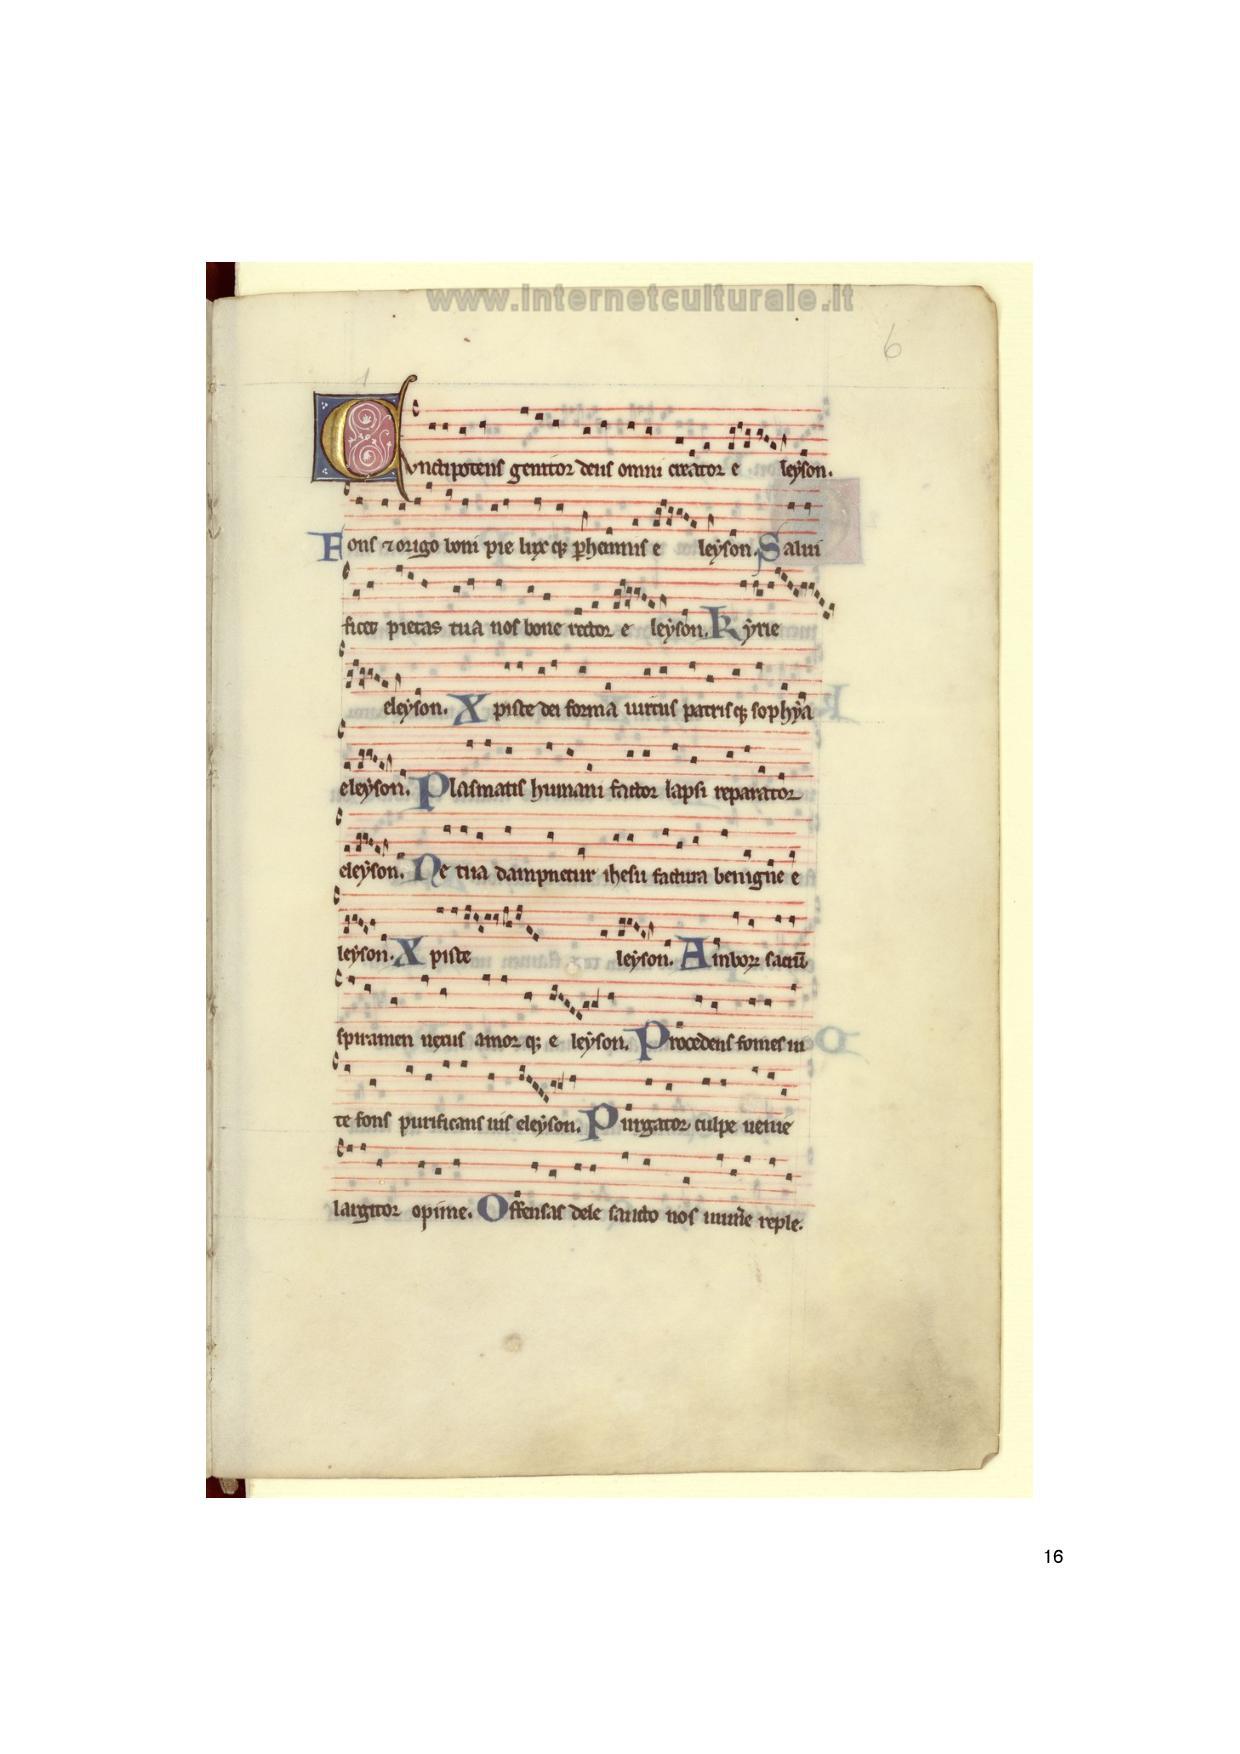 www.internetculturale.it
6
Cunctipotens genitor deus omni creator e leyson.
Fons ⁊ origo boni pie lux qꝫ ꝑhennis e leyson. Salui
ficet pietas tua nos bone rector e leyson. Kyrie
eleyson. Xpiste dei forma uirtus patris qꝫ sophya
eleyson. Plasmatis humani factor lapsi reparator
eleyson. Ne tua dampnetur ihesu factura benigne e
leyson. Xpiste leyson. Amborꝝ sacrū
spiramen nexus amor qꝫ e leyson. Procedens fomes in
te fons purificans uis eleyson. Purgator culpe uenie
largitor opime. Offensas dele sancto nos mun̄e reple.
16